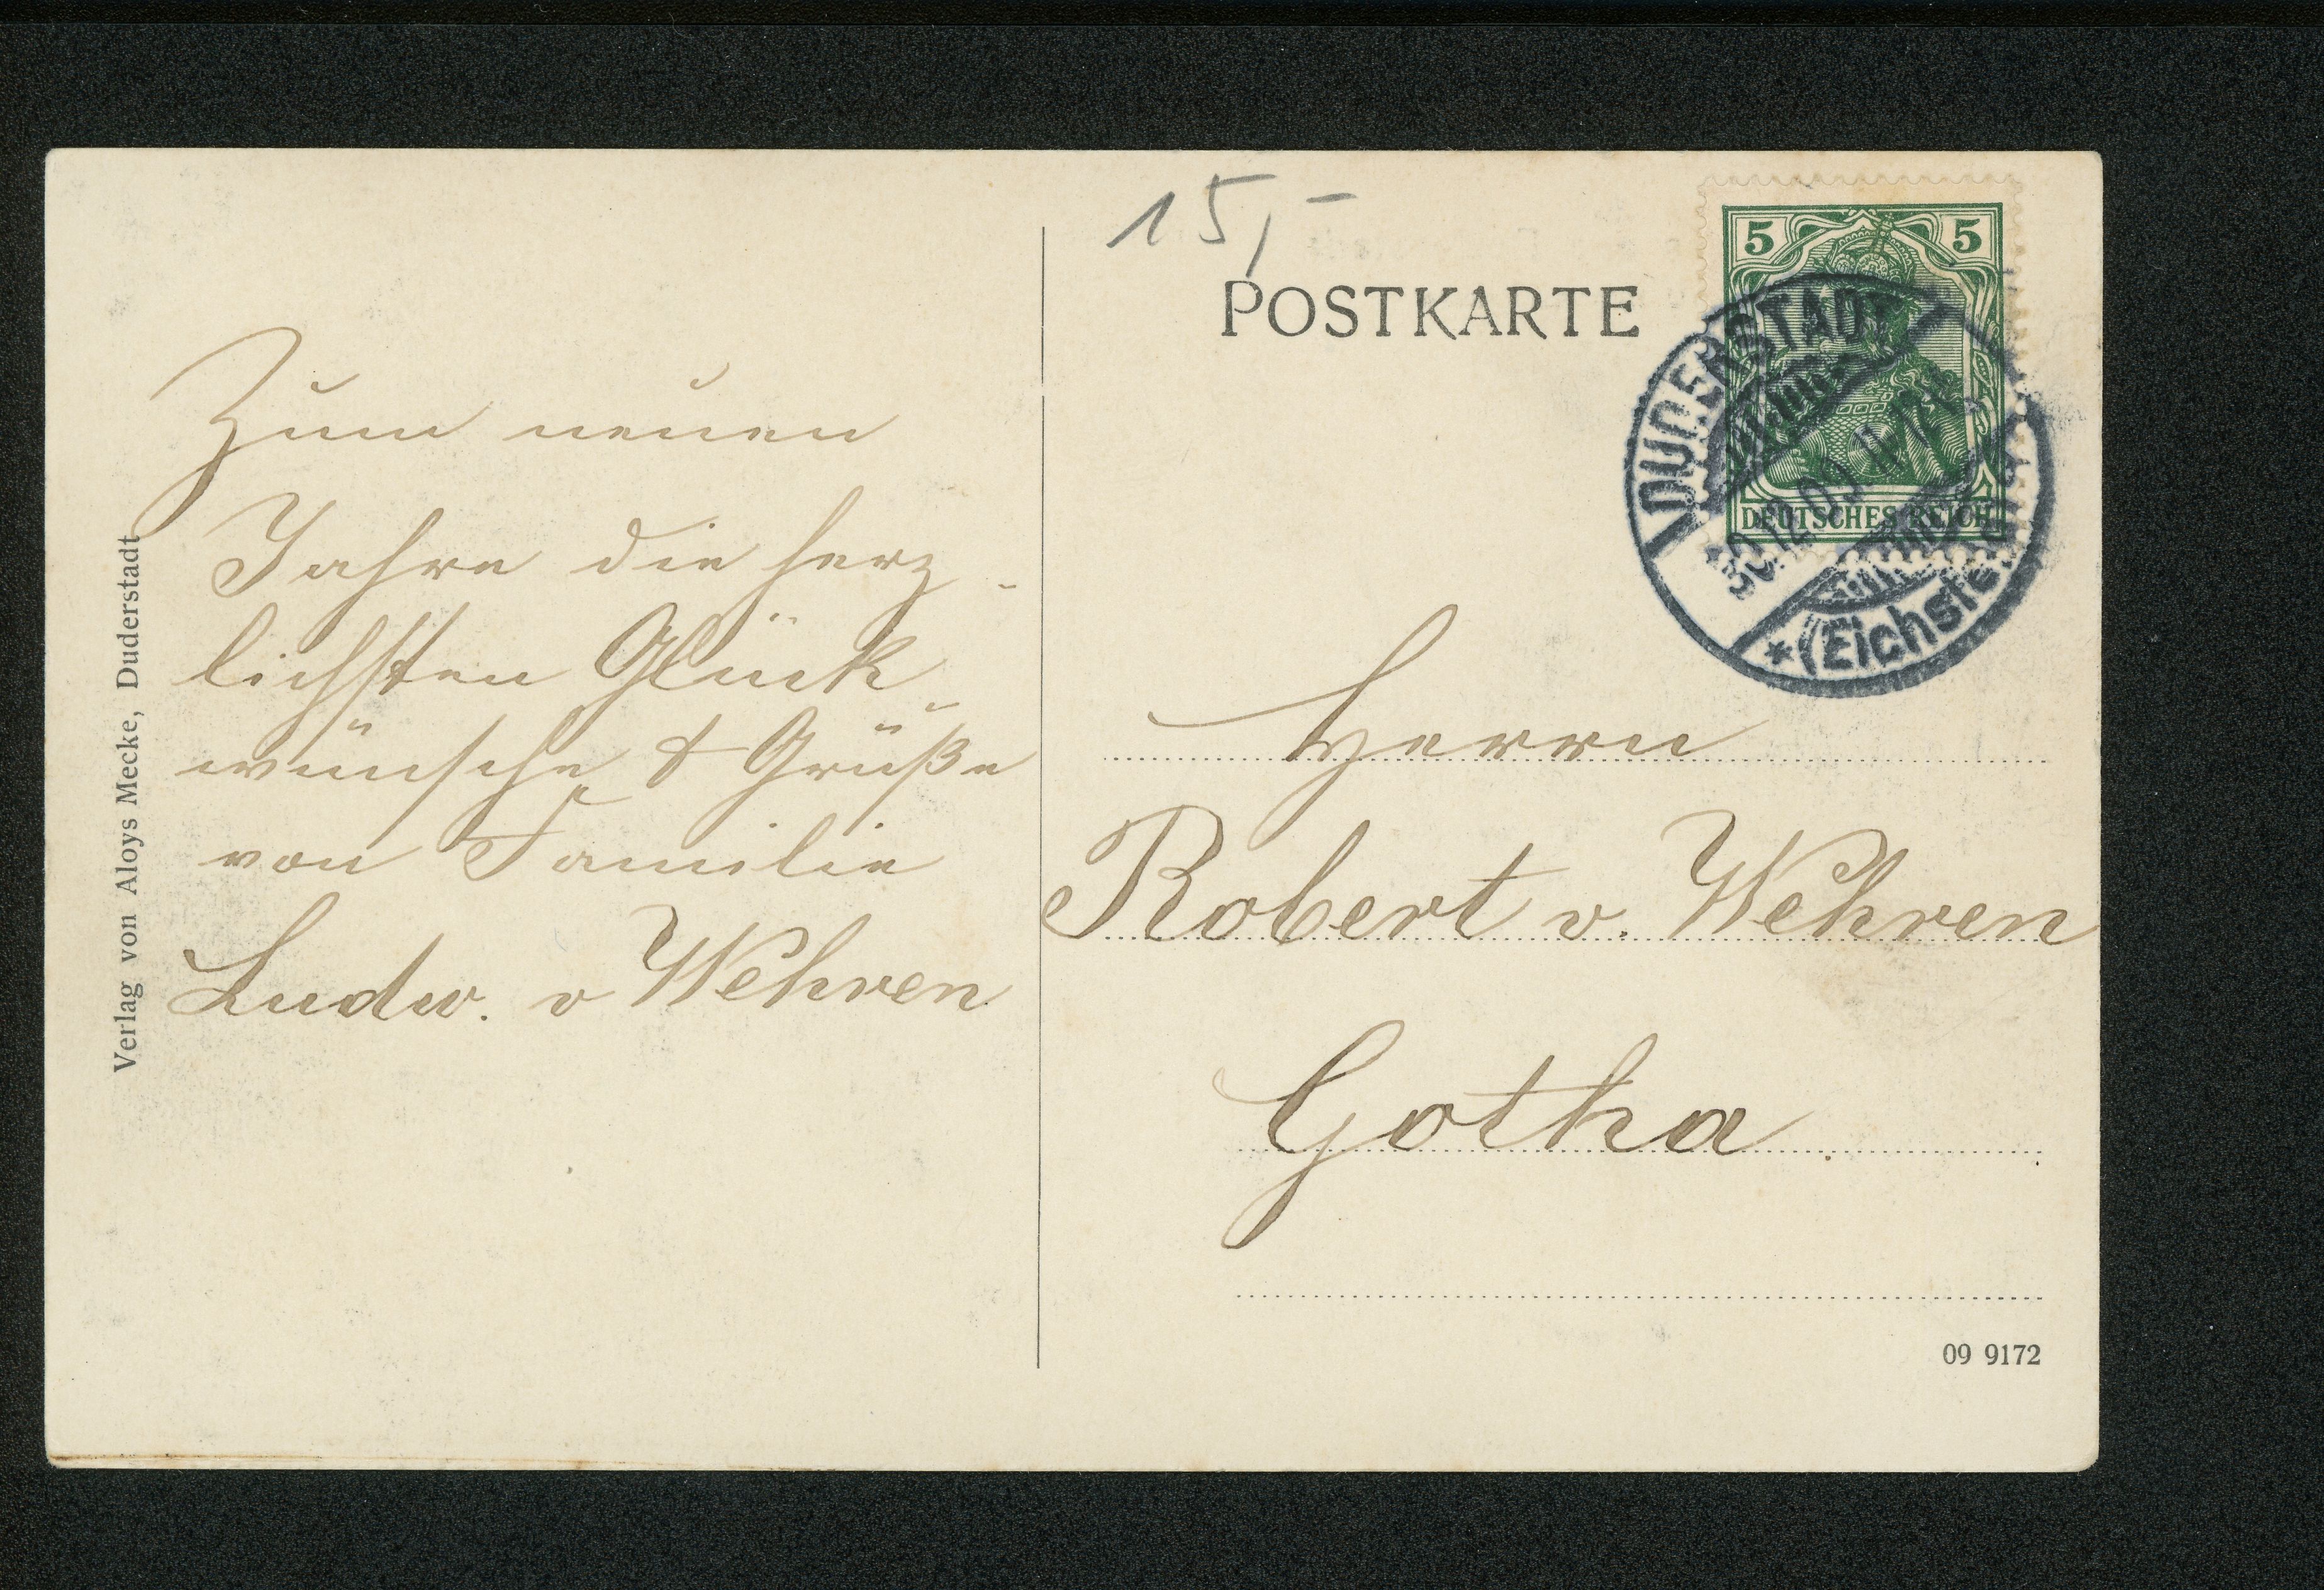 15,-
POSTKARTE
5 5
DEUTSCHES REICH
DUDERSTADT
30.12.09
*(Eichsfe
Zum neuen
Jahre die herz-
lichsten Glück-
wünsche & Grüße
von Familie
Ludw. v Wehren
Verlag von Aloys Mecke, Duderstadt
Herrn
Robert v. Wehren
Gotha.
09 9172